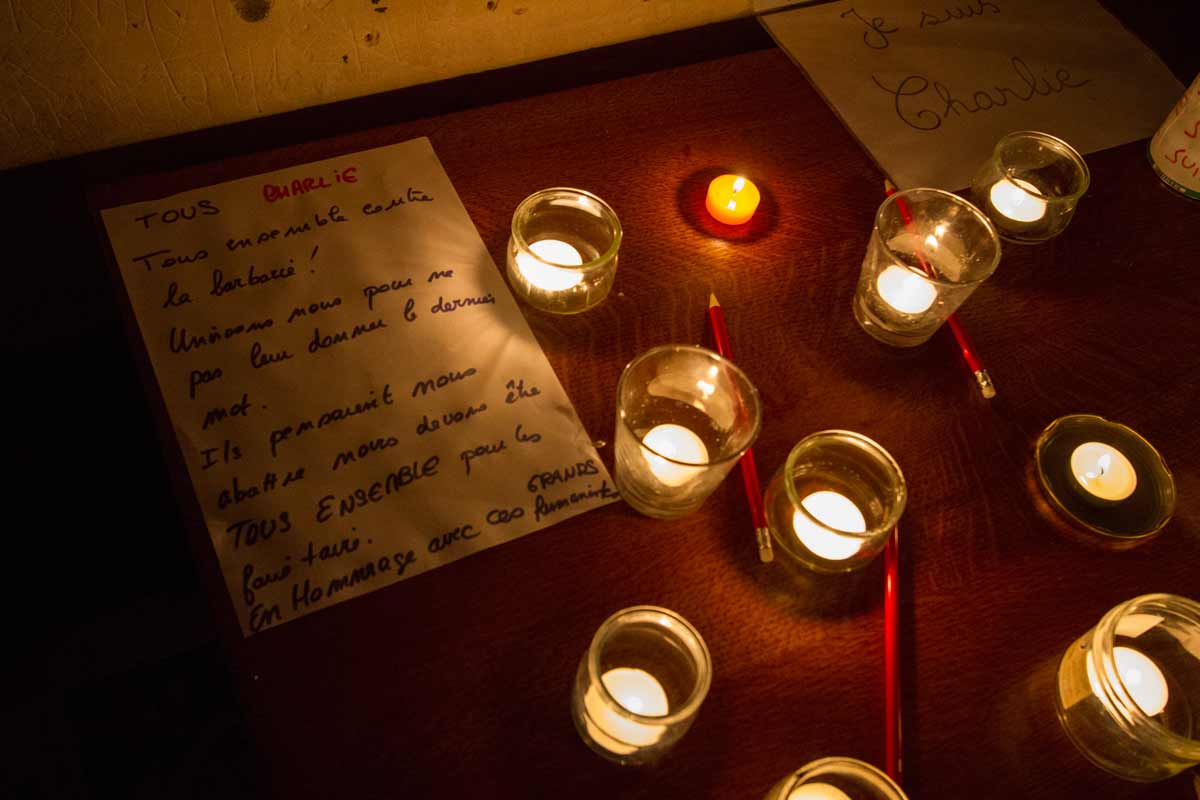 TOUS CHARLIE
Tous ensemble contre
la barbarie !
Unissons nous pour ne
pas leur donner le dernier
mot.
Ils pensaient nous
abattre nous devons être
TOUS ENSEMBLE pour les
faire taire.
GRANDS
En Hommage avec ces humanistes
Je suis
Charlie
SUI